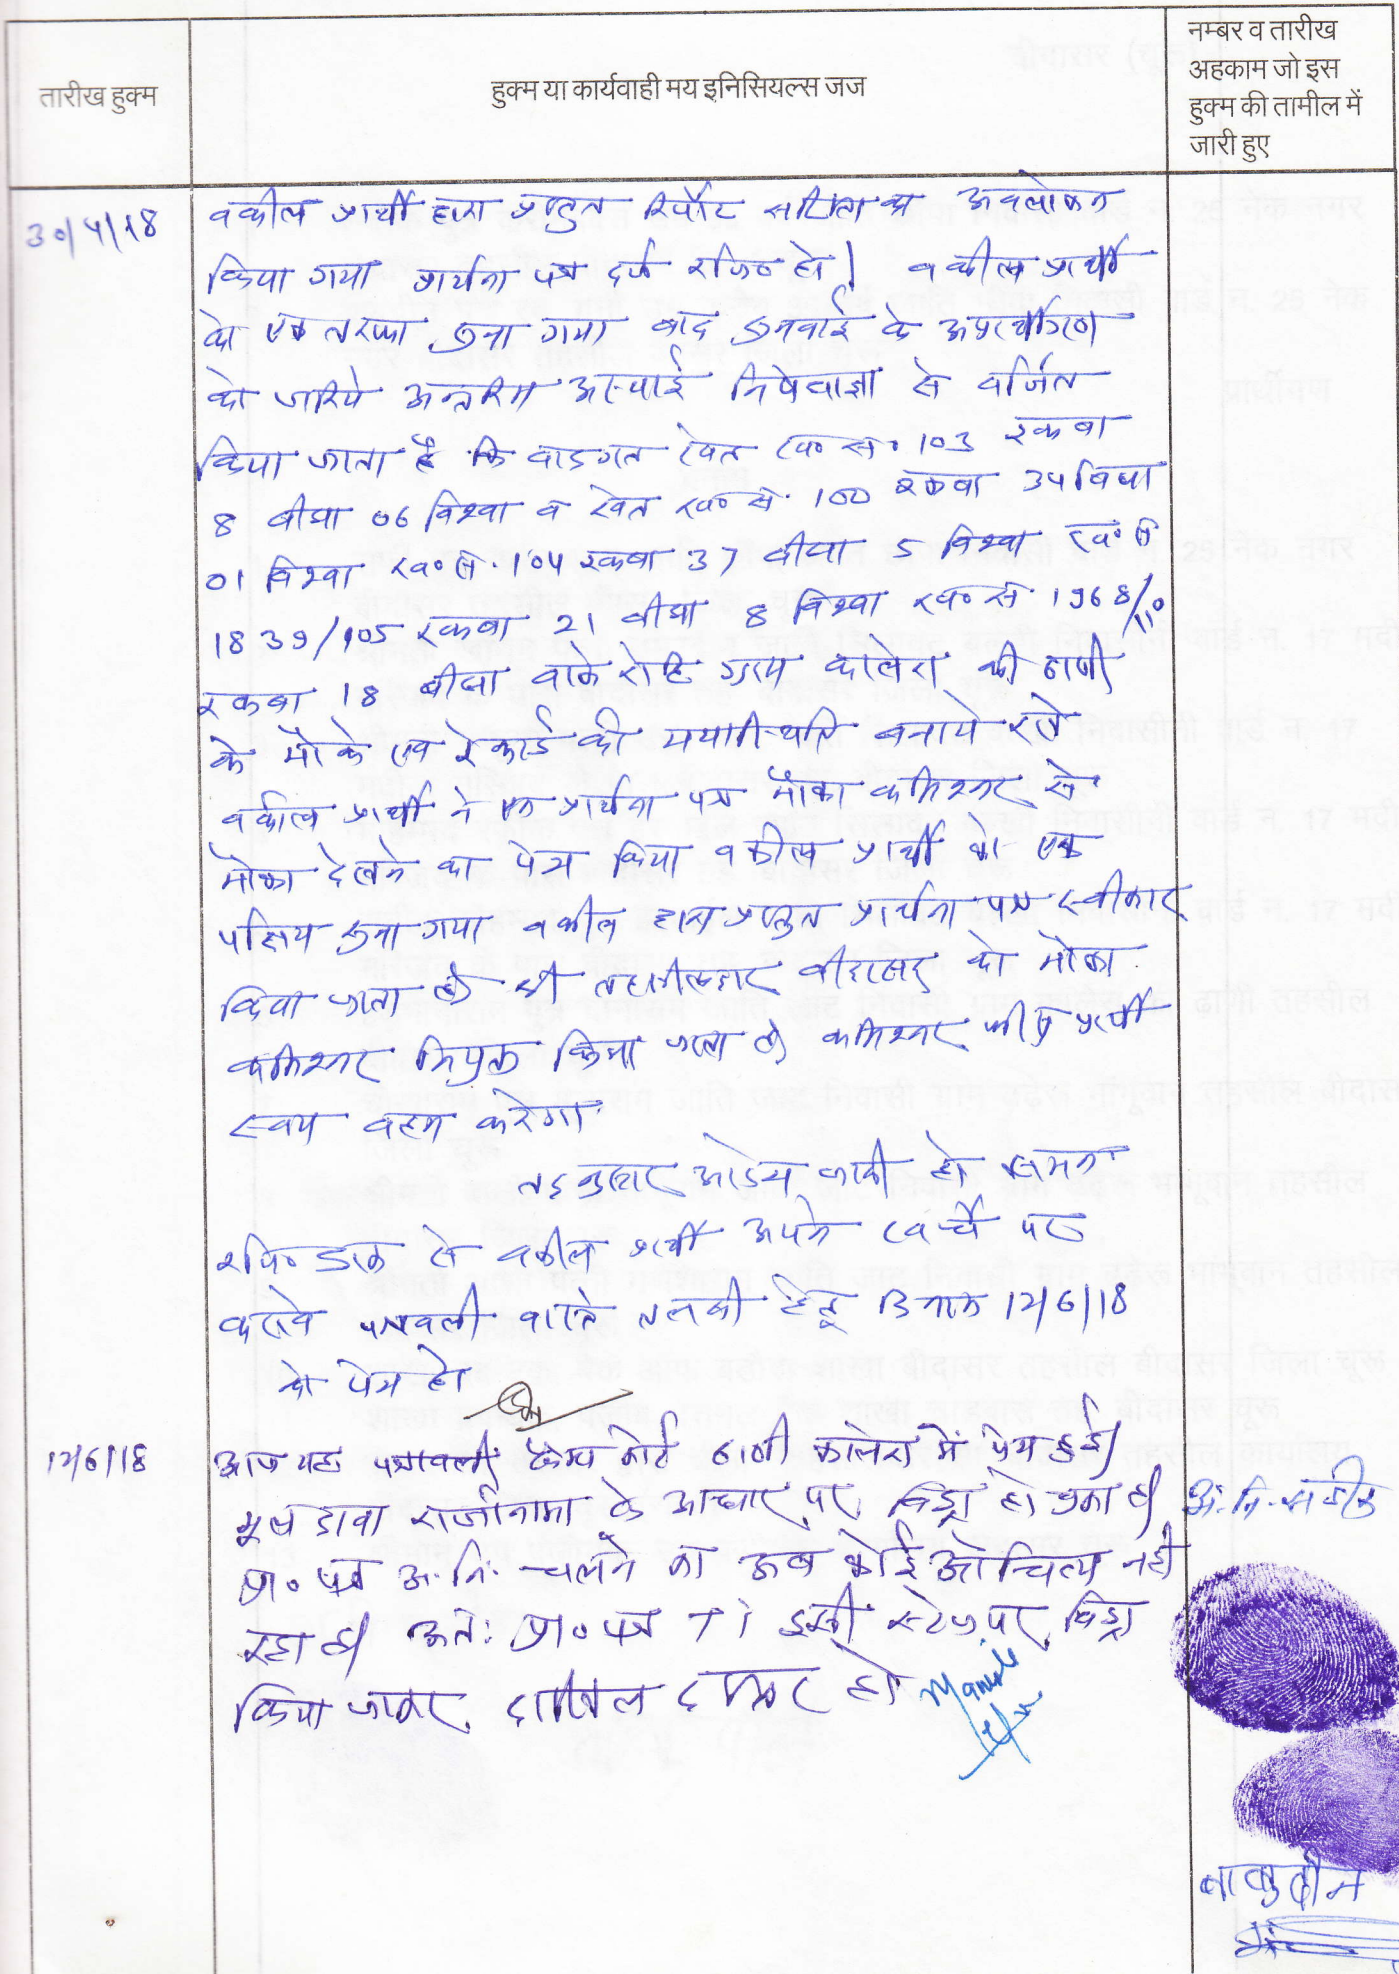 तारीख हुक्म
हुक्म या कार्यवाही मय इनिसियल्स जज
नम्बर व तारीख
अहकाम जो इस
हुक्म की तामील में
जारी हुए
30/4/18
वकील प्रार्थी द्वारा प्रस्तुत रिपोर्ट का अवलोकन
किया गया प्रार्थना पत्र दर्ज रजि० हो। वकील प्रार्थी
को एक तरफा सुना गया बाद सुनवाई के अप्रार्थीगण
को जरिये अन्तरिम अस्थाई निषेधाज्ञा से वर्जित
किया जाता है कि वादगत खेत ख० सं. 103 रकबा
8 बीघा 06 विश्वा व खेत ख० सं. 100 रकबा 34 बिघा
01 विश्वा ख० सं. 104 रकबा 37 बीघा 5 विश्वा ख० सं
1839/105 रकबा 21 बीघा 8 विश्वा ख० सं 1968/110
रकबा 18 बीघा वाके रोही ग्राम कालेरा की ढाणी
के मौके एव रेकार्ड की यथास्थिति बनाये रखे
वकील प्रार्थी ने एक प्रार्थना पत्र मौका कमिश्नर से
मौका देखने का पेश किया वकील प्रार्थी को एक
पक्षिय सुना गया वकील द्वारा प्रस्तुत प्रार्थना पत्र स्वीकार
किया जाता है श्री तहसीलदार बीदासर को मौका
कमिश्नर नियुक्त किया जाता है कमिश्नर फीस प्रार्थी
स्वय वहन करेगा
तदनुसार आदेश जारी हो
रजि० डाक से वकील प्रार्थी अपने खर्चे पर
करावे पत्रावली वास्ते तलबी हेतू दिनांक 12/6/18
को पेश हो
12/6/18
आज यह पत्रावली कैम्प कोर्ट ढाणी कालेरा में पेश हुई।
मूल दावा राजीनामा के आधार पर विड्रा हो चुका है।
प्रा० पत्र अ. नि. चलने का अब कोई औचित्य नही
रहा है। अत: प्रा० पत्र T I इसी स्टेज पर विड्रा
किया जाकर दाखिल दफ्तर हो